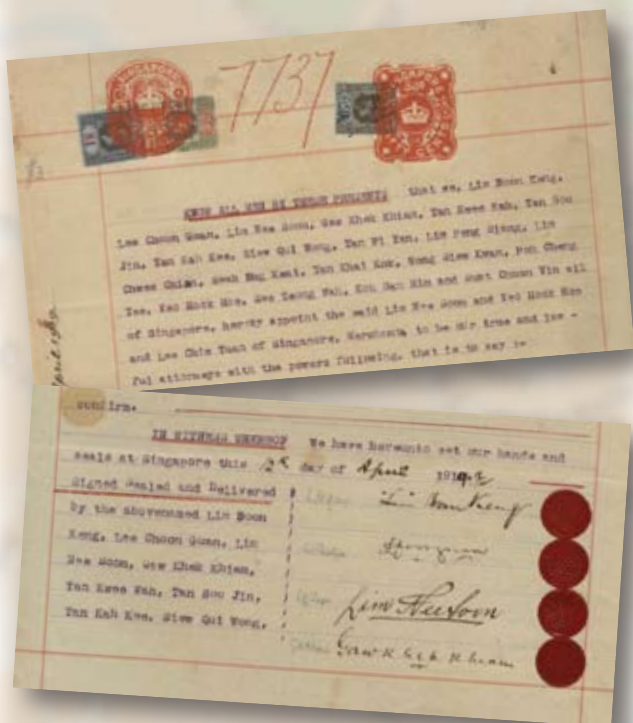 SINGAPORE
7737
KNOW ALL MEN BY THESE PRESENTS that we, Lim Boon Keng,
Lee Choon Guan, Lim Nee Soon, Gaw Khek Khiam, Tan Kwee Wah, Tan Soo
Jin, Tan Kah Kee, Siew Qui Wong, Tan Pi Yan, Lim Peng Siang, Lim
Chwee Chian, Seah Eng Keat, Tan Khai Kok, Wong Siew Kwan, Poh Cheng
Tee, Yeo Hock Hoe, See Teong Wah, Koh San Hin and Quat Choon Yin all
of Singapore, hereby appoint the said Lim Nee Soon and Yeo Hock Hoe
and Lee Chim Tuan of Singapore, Merchants, to be our true and law -
ful attorneys with the powers following, that is to say :-
confirm.
IN WITNESS WHEREOF We have hereunto set our hands and
seals at Singapore this day of April 191
Signed Sealed and Delivered
by the abovenamed Lim Boon
Keng, Lee Choon Guan, Lim
Nee Soon, Gaw Khek Khiam,
Tan Kwee Wah, Tan Soo Jin,
Tan Kah Kee, Siew Qui Wong,
Lim Boon Keng
Lim Nee Soon
Gaw Khek Khiam